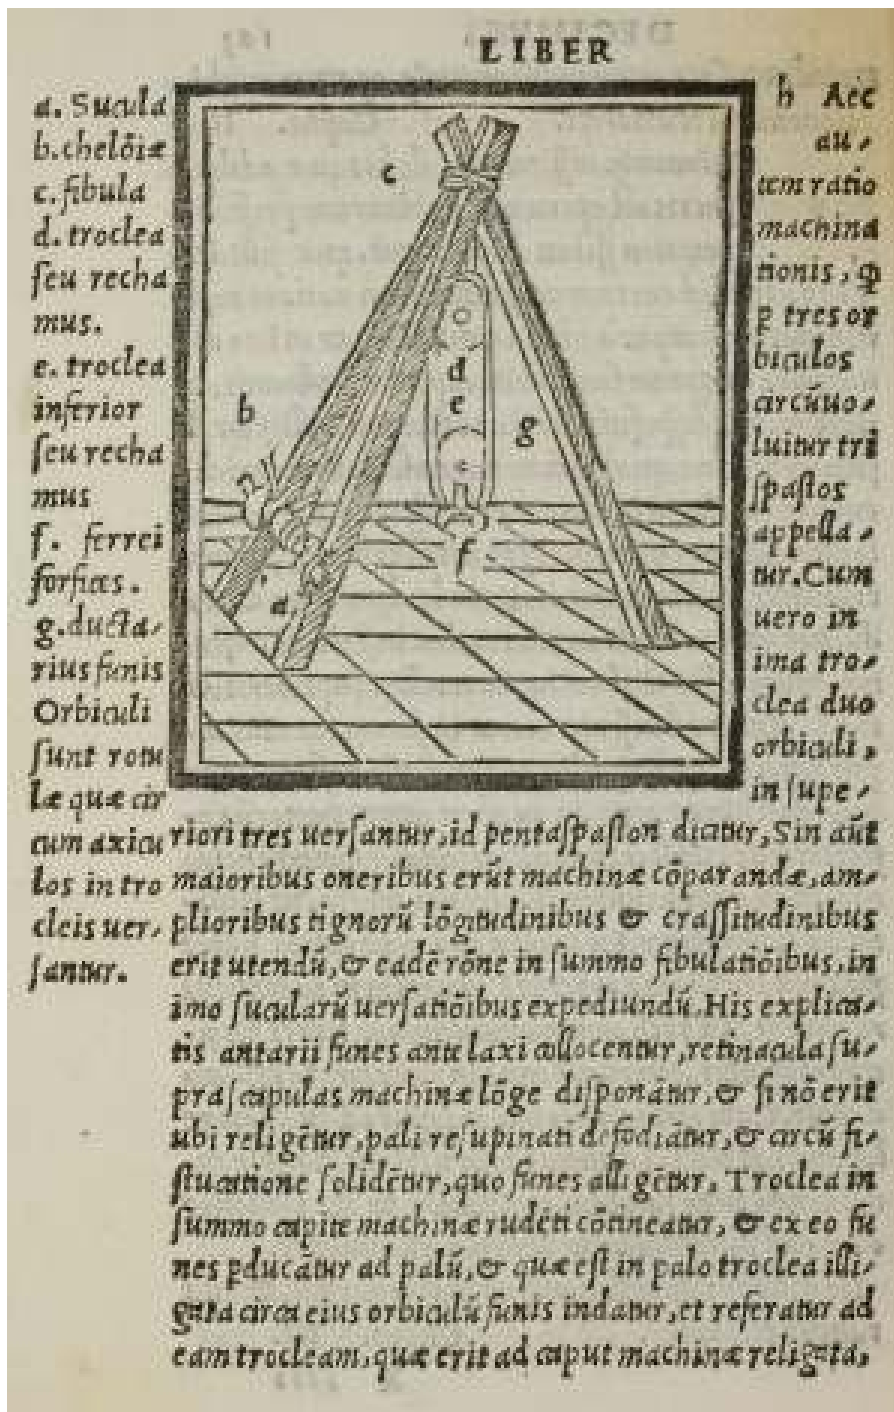 LIBER
a. Sucula
b. chelōiæ
c. fibula
d. troclea
ſeu recha
mus.
e. troclea
inferior
ſeu recha
mus
f. ferrei
forfices.
g. ducta-
rius funis
Orbiculi
ſunt rotu
læ quæ cir
cum axicu
los in tro
cleis uer-
ſantur.
c
b
d
e
g
f
a.
h Aec
au-
tem ratio
machina
tionis, ꝙ
ꝑ tres or
biculos
circūuo-
luitur tri
ſpaſtos
appella-
tur. Cum
uero in
ima tro-
clea duo
orbiculi,
in ſupe-
riori tres uerſantur, id pentaſpaſton dicitur, Sin aūt
maioribus oneribus erūt machinæ cōparandæ, am-
plioribus tignorū lōgitudinibus & craſſitudinibus
erit utendū, & eadē rōne in ſummo fibulatiōibus, in
imo ſucularū uerſatiōibus expediundū. His explica-
tis antarii funes ante laxi collocentur, retinacula ſu-
pra ſcapulas machinæ lōge diſponātur, & ſi nō erit
ubi religētur, pali reſupinati defodiātur, & circū fi-
ſtucatione ſolidētur, quo funes alligētur. Troclea in
ſummo capite machinæ rudēti cōtineatur, & ex eo fu
nes ꝑducātur ad palū, & quæ eſt in palo troclea illi-
gata circa eius orbiculū funis indatur, et referatur ad
eam trocleam, quæ erit ad caput machinæ religata,